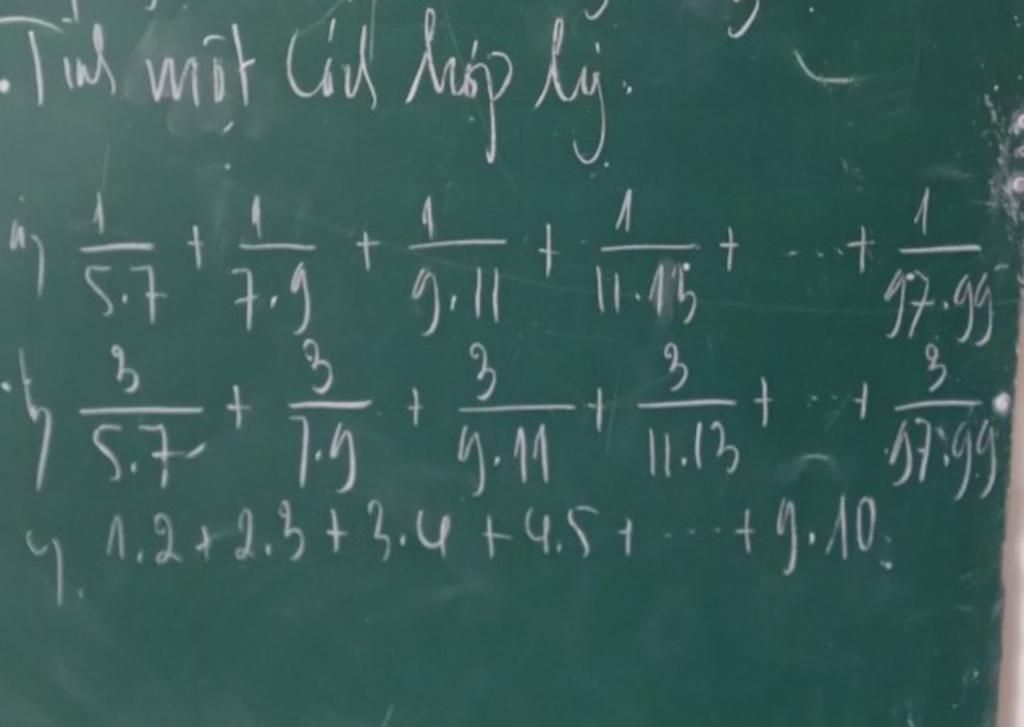 Tính một cách hợp lý.
a) 1/5.7 + 1/7.9 + 1/9.11 + 1/11.13 + ... + 1/97.99
b) 3/5.7 + 3/7.9 + 3/9.11 + 3/11.13 + ... + 3/97.99
c) 1.2 + 2.3 + 3.4 + 4.5 + ... + 9.10.